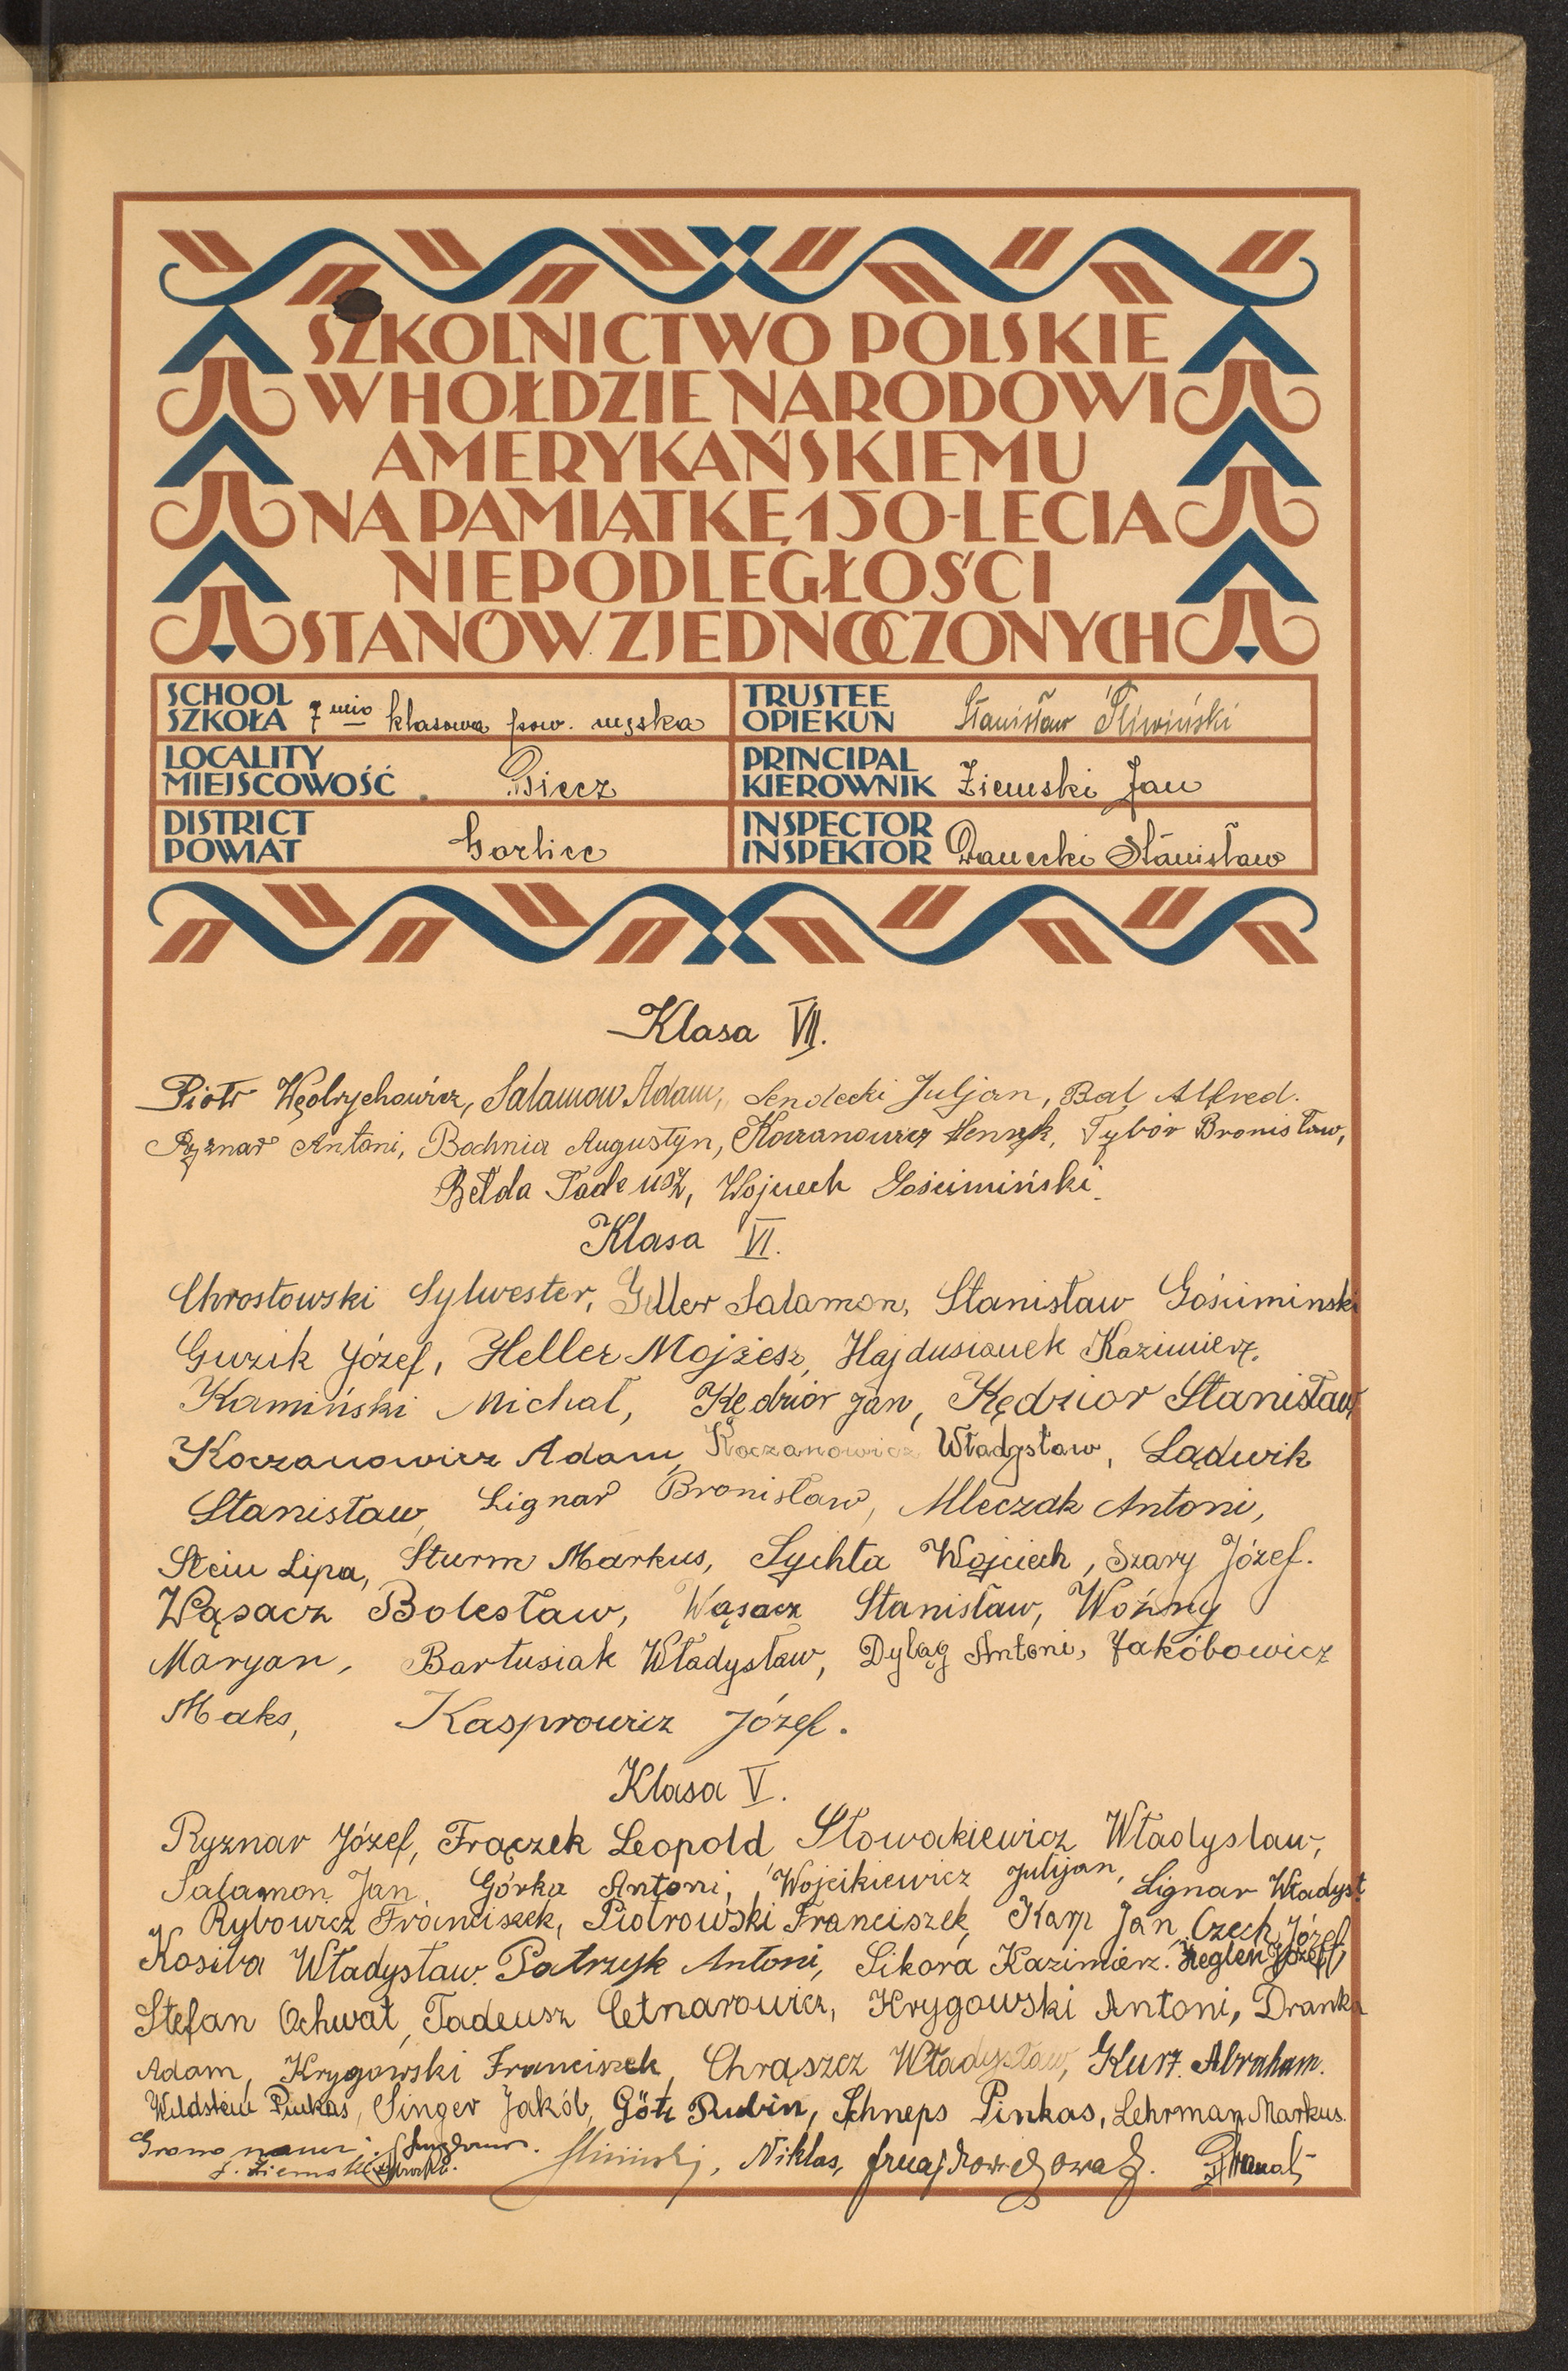 SZKOLNICTWO POLSKIE
W HOŁDZIE NARODOWI
AMERYKAŃSKIEMU
NA PAMIĄTKĘ 150-LECIA
NIEPODLEGŁOŚCI
STANÓW ZJEDNOCZONYCH
SCHOOL
SZKOŁA 7 mio klasowa pow. męska
TRUSTEE
OPIEKUN Stanisław Śliwiński
LOCALITY
MIEJSCOWOŚĆ Biecz
PRINCIPAL
KIEROWNIK Ziemski Jan
DISTRICT
POWIAT Gorlice
INSPECTOR
INSPEKTOR Danecki Stanisław
Klasa VII.
Piotr Wędrychowicz, Salamon Adam, Sendecki Juljan, Bal Alfred.
Ryznar Antoni, Bochnia Augustyn, Koczanowicz Henryk, Tybór Bronisław,
Bełda Tadeusz, Wojciech Gościmiński.
Klasa VI.
Chrostowski Sylwester, Geller Salamon, Stanisław Gościminski
Guzik Józef, Heller Mojżesz, Hajdusianek Kazimierz.
Kamiński Michał, Kędzior Jan, Kędzior Stanisław
Koczanowicz Adam, Koczanowicz Władysław, Lądwik
Stanisław, Lignar Bronisław, Mleczak Antoni,
Stein Lipa, Sturm Markus, Sychta Wojciech, Szary Józef.
Wąsacz Bolesław, Wąsacz Stanisław, Woźny
Maryan, Bartusiak Władysław, Dyląg Antoni, Jakóbowicz
Maks, Kasprowicz Józef.
Klasa V.
Ryznar Józef, Frączek Leopold Słowakiewicz Władyslaw,
Salamon Jan, Górka Antoni, Wojcikiewicz Julijan, Lignar Władysł
Rybowicz Franciszek, Piotrowski Franciszek, Karp Jan, Czech Józef
Kosiba Władysław. Patrzyk Antoni, Sikora Kazimierz. Żegleń Józef,
Stefan Ochwat, Tadeusz Cetnarowicz, Krygowski Antoni, Dranka
Adam, Krygowski Franciszek, Chrąszcz Władysław, Kurz Abraham.
Wildstein Pinkas, Singer Jakób, Götz Rubin, Schneps Pinkas, Lehrman Markus.
Grono naucz.:
J. Ziemski Śliwiński, Niklas,